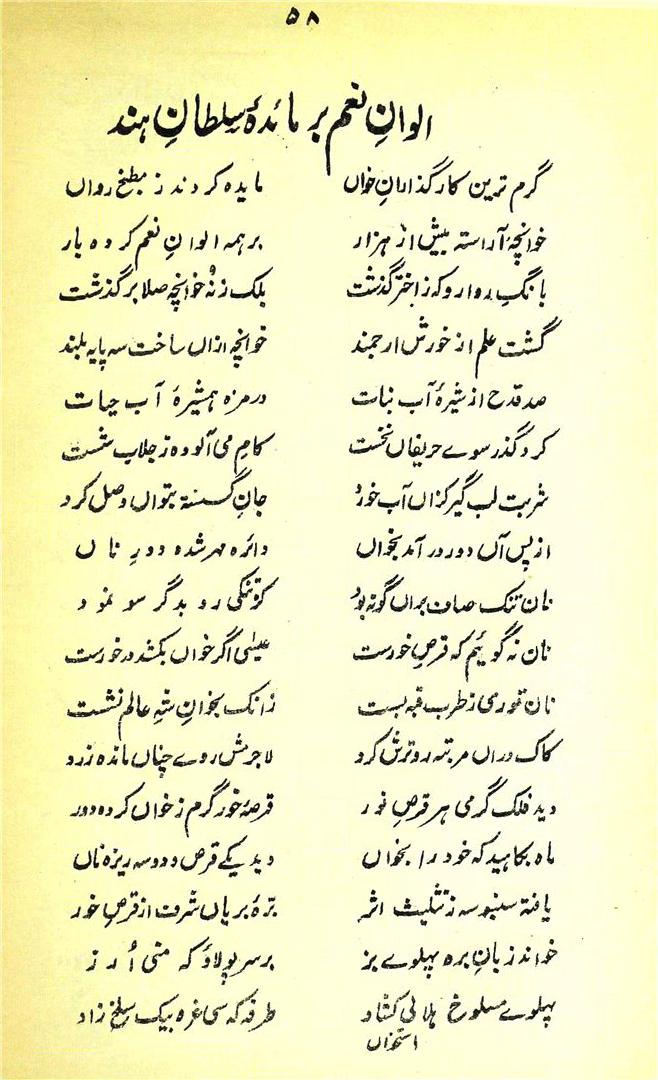 ۵۸
الوانِ نعم بر مائدۂ سلطانِ ہند
گرم ترین کارگذارانِ خواں مایدہ کردند ز مطبخ رواں
خوانچۂ آراستہ بیش از ہزار بر ہمہ الوانِ نعم کردہ بار
بانگِ روارو کہ ز اختر گذشت بلک ز نُہ خوانچہ صلا بر گذشت
گشت علم از خورش ارجمند خوانچہ ازاں ساخت سہ پایہ بلند
صد قدح از شیرۂ آب نبات در مزہ ہمشیرۂ آب حیات
کرد گذر سوے حریفاں نخست کامِ می آلودہ ز جلاب شست
شربت لب گیر کزاں آب خورد جانِ گسستہ بتواں وصل کرد
از پس آں دور در آمد بخواں دائرہ مہر شدہ دورِ ناں
نان تنک صاف براں گونہ بود کز تنکی رو بدگر سو نمود
نان نہ گوئیم کہ قرصِ خورست عیسٰی اگر خواں بکشد در خورست
نان تنوری ز طرب قبہ بست زانک بخوانِ شہِ عالم نشست
کاک دراں مرتبہ رو ترش کرد لاجرمش روے چناں ماندہ زرد
دید فلک گرمیِ ہر قرصِ نور قرصۂ خور گرم ز خواں کردہ دور
ماہ بکاہید کہ خود را بخواں دید یکے قرص و دو سہ ریزہ ناں
یافتہ سنبوسہ ز تثلیث اثر برّۂ بریاں شرف از قرصِ خور
خواند زبانِ برہ پہلوے بز بر سر پولاؤ کہ منی اُرز
پہلوے مسلوخ ہلالی کشاد طرفہ کہ سی غرہ بیک سلخ زاد
استخواں